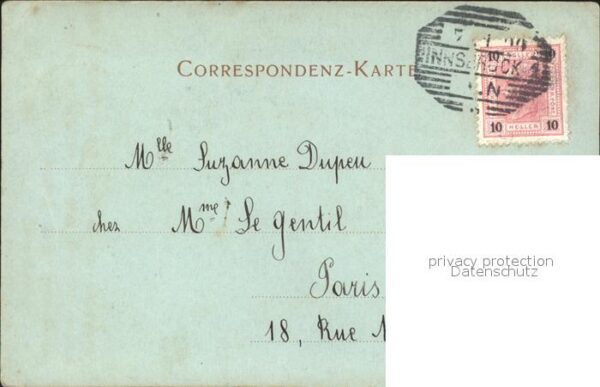 INNSBRUCK
10 10
HELLER
CORRESPONDENZ-KARTE
Mlle Suzanne Dupeu
chez Mme Le Gentil
Paris
18, Rue
privacy protection
Datenschutz